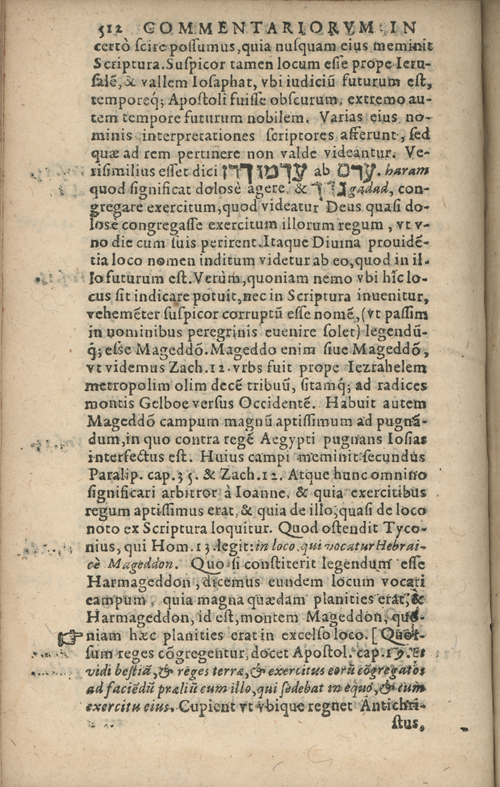 512 COMMENTARIORVM: IN
certò scire possumus, quia nusquam eius meminit
Scriptura. Suspicor tamen locum esse prope Ieru-
salē, & vallem Iosaphat, vbi iudiciū futurum est,
temporeq́; Apostoli fuisse obscurum, extremo au-
tem tempore futurum nobilem. Varias eius no-
minis interpretationes scriptores afferunt, sed
quæ ad rem pertinere non valde videantur. Ve-
risimilius esset dici ab ערם. haram
quod significat dolosè agere. & gadad, con-
gregare exercitum, quod videatur Deus quasi do-
lose congregasse exercitum illorum regum, vt v-
no die cum suis perirent. Itaque Diuina prouidē-
tia loco nomen inditum videtur ab eo, quod in il-
lo futurum est. Verùm, quoniam nemo vbi hîc lo-
cus sit indicare potuit, nec in Scriptura inuenitur,
vehemēter suspicor corruptū esse nomē, (vt passim
in nominibus peregrinis euenire solet) legendū-
q́; esse Mageddō. Mageddo enim siue Mageddō,
vt videmus Zach. 12. vrbs fuit prope Iezrahelem
metropolim olim decē tribuū, sitamq́; ad radices
montis Gelboe versus Occidentē. Habuit autem
Mageddō campum magnū aptissimum ad pugnā-
dum, in quo contra regē Aegypti pugnans Iosias
interfectus est. Huius campi meminit secundus
Paralip. cap. 35. & Zach. 12. Atque hunc omnino
significari arbitror à Ioanne, & quia exercitibus
regum aptissimus erat, & quia de illo, quasi de loco
noto ex Scriptura loquitur. Quod ostendit Tyco-
nius, qui Hom. 13. legit: in loco, qui vocatur Hebrai-
cè Mageddon. Quo si constiterit legendum esse
Harmageddon, dicemus eundem locum vocari
campum, quia magna quædam planities erat, &
Harmageddon, id est, montem Mageddon, quo-
niam hæc planities erat in excelso loco. [ Quot-
sum reges cōgregentur, docet Apostol. cap. 19. Et
vidi bestiā, & reges terræ, & exercitus eorū cōgregatos
ad faciēdū præliū cum illo, qui sedebat in equo, & cum
exercitu eius. Cupient vt vbique regnet Antichri-
stus,